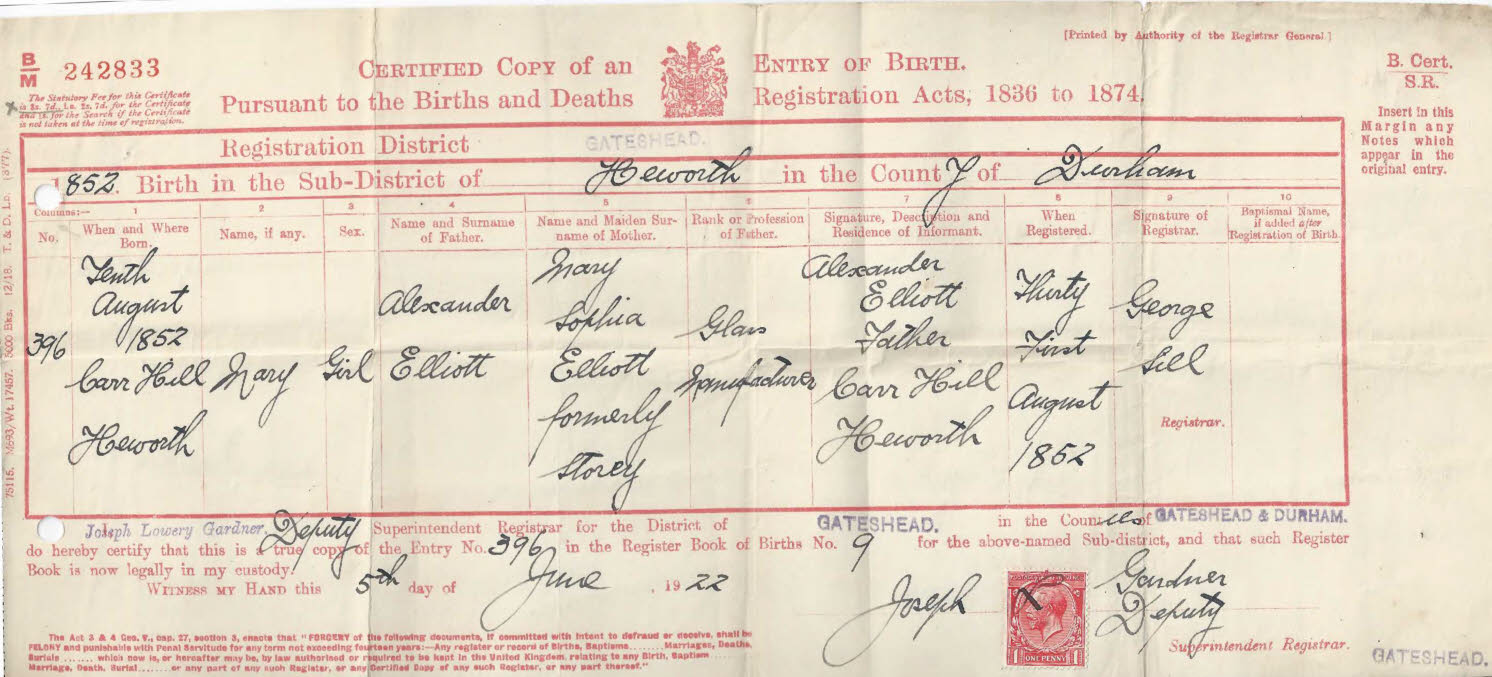 [Printed by Authority of the Registrar General.]
B/M 242833
CERTIFIED COPY OF AN ENTRY OF BIRTH.
B. Cert.
S.R.
The Statutory Fee for this Certificate
is 2s. 7d., i.e. 2s. 7d. for the Certificate
and 1s. for the Search if the Certificate
is not taken at the time of registration.
PURSUANT TO THE BIRTHS AND DEATHS REGISTRATION ACTS, 1836 TO 1874.
Insert in this
Margin any
Notes which
appear in the
original entry.
Registration District GATESHEAD.
1852. Birth in the Sub-District of Heworth in the County of Durham
Columns:— 1 2 3 4 5 6 7 8 9 10
No. When and Where Born. Name, if any. Sex. Name and Surname of Father. Name and Maiden Surname of Mother. Rank or Profession of Father. Signature, Description and Residence of Informant. When Registered. Signature of Registrar. Baptismal Name, if added after Registration of Birth.
396
Tenth
August
1852
Carr Hill
Heworth
Mary
Girl
Alexander
Elliott
Mary
Sophia
Elliott
formerly
Storey
Glass
Manufacturer
Alexander
Elliott
Father
Carr Hill
Heworth
Thirty
First
August
1852
George
Sill
Registrar.
Joseph Lowery Gardner, Deputy Superintendent Registrar for the District of GATESHEAD. in the Counties of GATESHEAD & DURHAM.
do hereby certify that this is a true copy of the Entry No. 396 in the Register Book of Births No. 9 for the above-named Sub-district, and that such Register
Book is now legally in my custody.
WITNESS MY HAND this 5th day of June, 1922
Joseph Gardner
Deputy
Superintendent Registrar.
ONE PENNY
GATESHEAD.
The Act 3 & 4 Geo. V., cap. 27, section 3, enacts that "FORGERY of the following documents, if committed with intent to defraud or deceive, shall be
FELONY and punishable with Penal Servitude for any term not exceeding fourteen years:—Any register or record of Births, Baptisms.......Marriages, Deaths,
Burials ....... which now is, or hereafter may be, by law authorised or required to be kept in the United Kingdom, relating to any Birth, Baptism.......
Marriage, Death, Burial.......or any part of any such Register, or any Certified Copy of any such Register, or any part thereof."
75115. M693/Wt. 17457. 5000 Bks. 12/18. T. & D. Ld. (377).